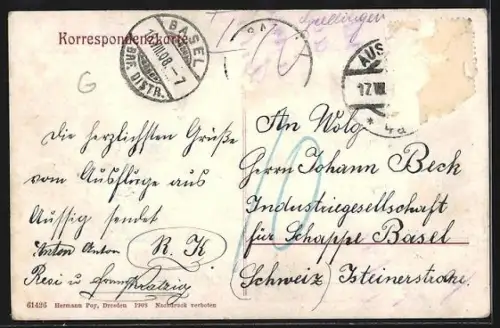 Korrespondenzkarte
BASEL
VIII.08.-7
BRF. DISTR.
AUS
17 VIII
* 4a
G
10
Die herzlichsten Grüße
vom Ausfluge aus
Aussig sendet
Anton Anton R. K.
Resi u
An Wolg
Herrn Johann Beck
Industriegesellschaft
für Schappe Basel
(Schweiz) Isteinerstraße.
61426 Hermann Poy, Dresden 1905 Nachdruck verboten